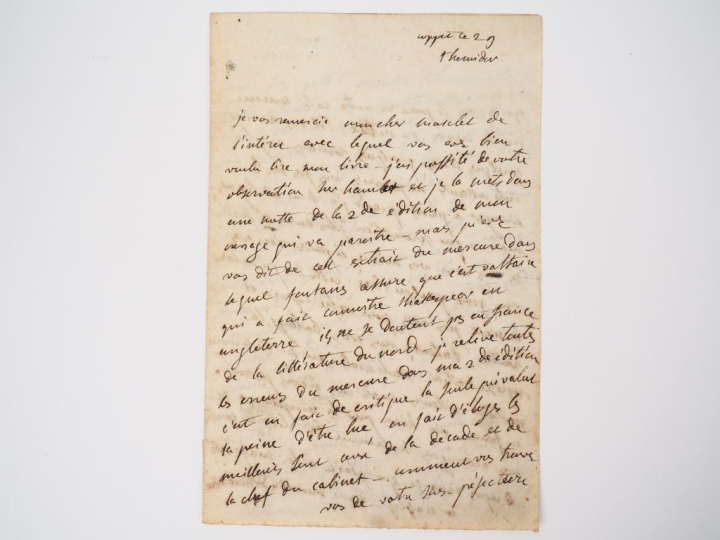 coppet ce 29
thermidor
je vous remercie mon cher masclet de
l'intérêt avec lequel vous avez bien
voulu lire mon livre - j'ai proffité de votre
observation sur hamlet et je la mets dans
une notte de la 2 de édition de mon
ouvrage qui va paroître - mais qu'avez
vous dit de cet extrait du mercure dans
lequel fontanes assure que c'est voltaire
qui a fait connoitre shakespear en
angleterre ils ne se doutent pas en france
de la littérature du nord - je relève toutes
les erreurs du mercure dans ma 2 de édition
c'est en fait de critique la seule qui valut
la peine d'être lue en fait d'éloges les
meilleurs sont ceux de la décade et de
la clef du cabinet - comment vous trouvez
vous de votre sous-préfecture